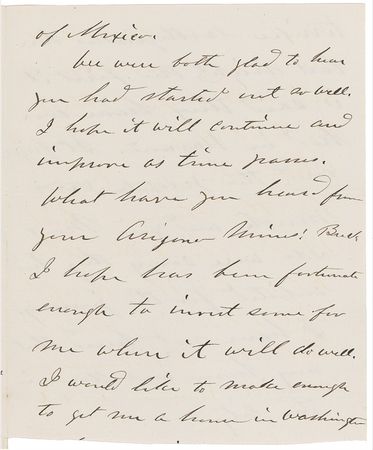 of Mexico.
We were both glad to hear
you had started out so well.
I hope it will continue and
improve as time passes.
What have you heard from
your Arizona Mines! Buck
I hope has been fortunate
enough to invest some for
me where it will do well.
I would like to make enough
to get me a home in Washington